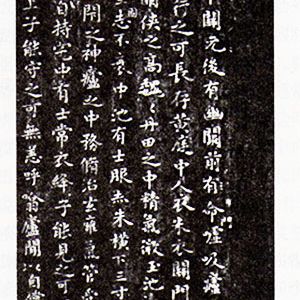 下關元後有幽闕前有命門噓吸廬
行之可長存黄庭中人衣朱衣關門
闕俠之高巍巍丹田之中精氣微玉池
志不衰中池有士服赤朱橫下三寸
閉之神廬之中務脩治玄雍氣管受
自持宅中有士常衣絳子能見之可
上子能守之可無恙呼翕廬間以自償